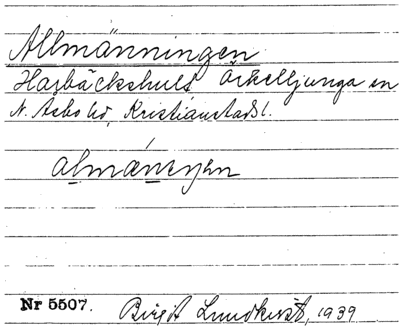 Allmänningen
Hasbäckshult Örkelljunga sn
N. Åsbo hd, Kristianstads l.
almäneŋen
Nr 5507. Birgit Lundkvist, 1939